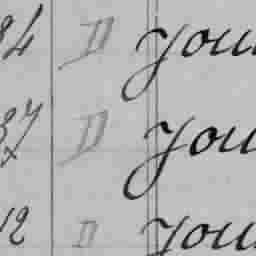 84 D you
37 D you
12 D you